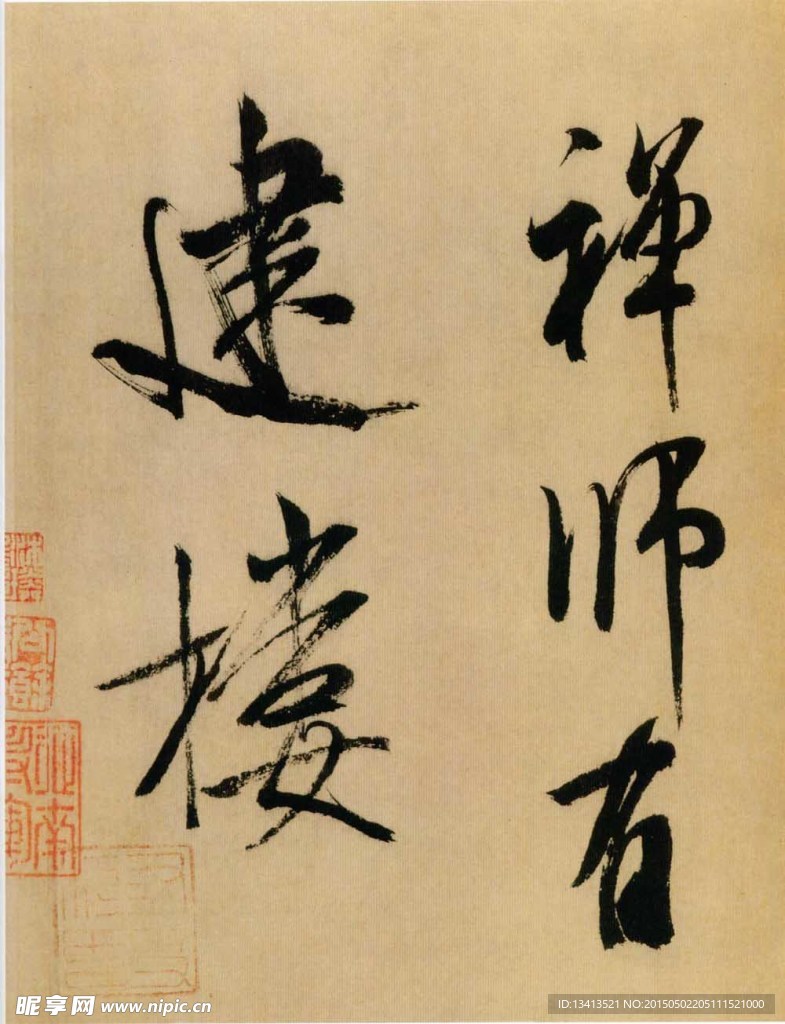 禪師有
建樓
昵享网 www.nipic.cn
ID:13413521 NO:20150502205111521000